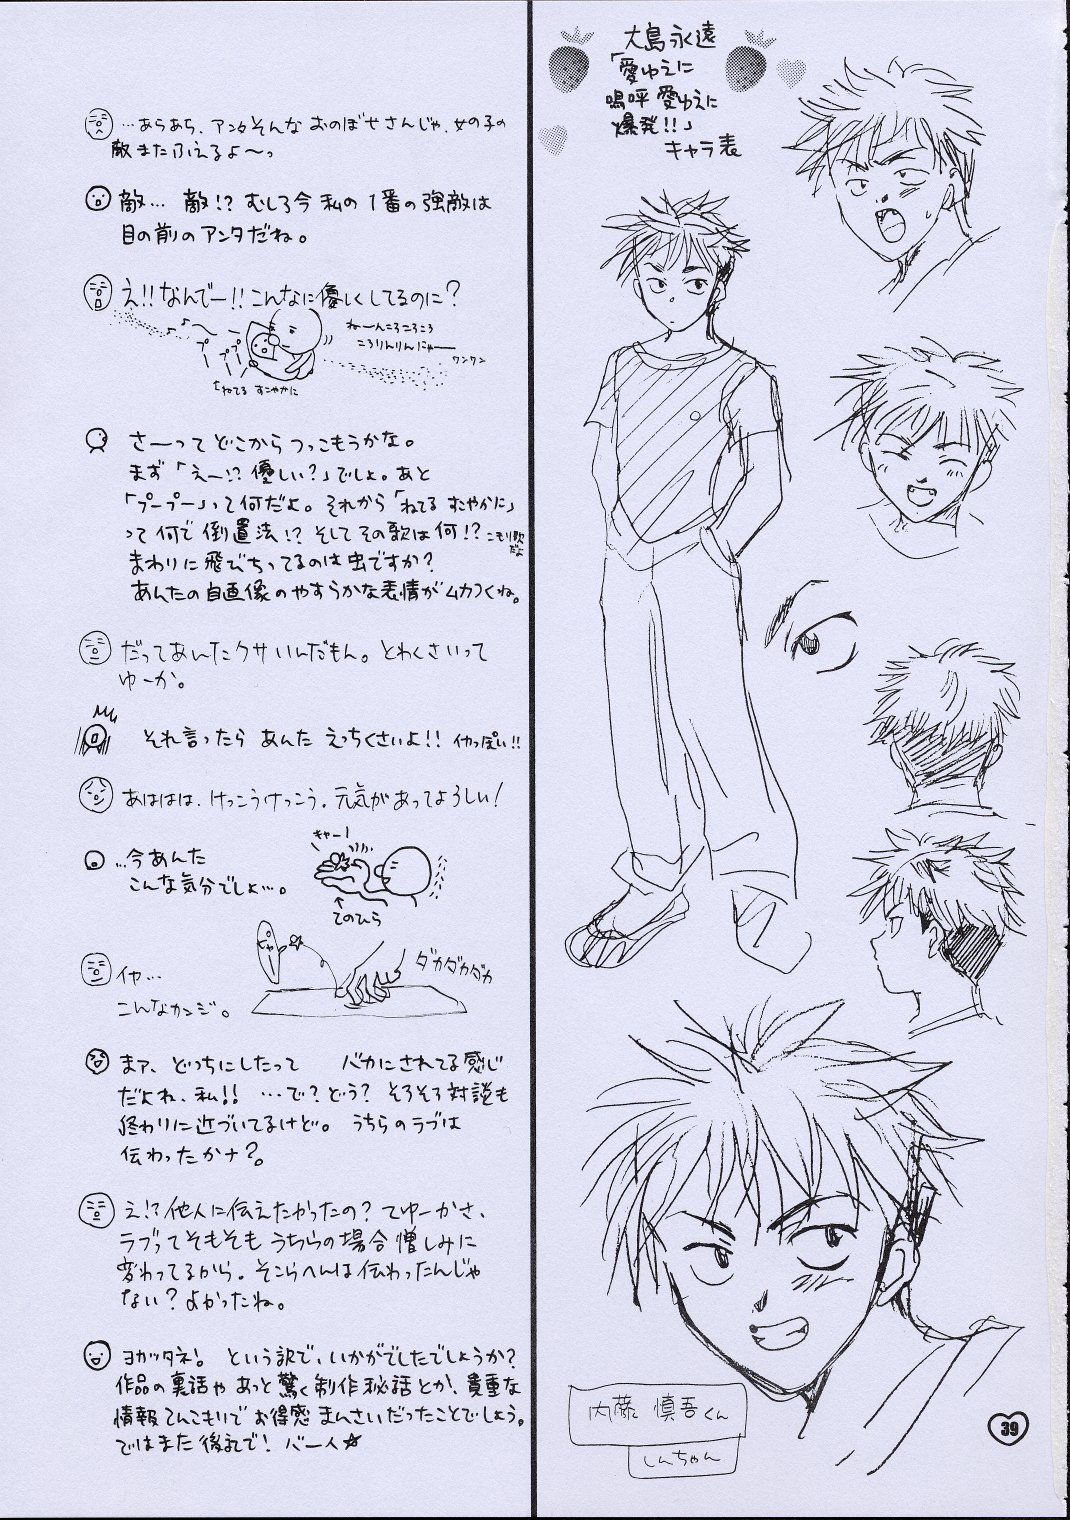 大島永遠
「愛ゆえに
嗚呼 愛ゆえに
爆発!!」
キャラ表
内藤 慎吾くん
しんちゃん
39
…あらあら、アンタそんな おのぼせさんじゃ、女の子の
敵またふえるよ〜っ
敵… 敵!? むしろ今 私の 1番の強敵は
目の前のアンタだね。
え!!なんでー!!こんなに優しくしてるのに?
ねーんころころころ
ころりんりんにゃー
ワンワン
プープププ
↑ねてる すこやかに
さーって どこから つっこもうかな。
まず「えー!? 優しい?」でしょ。あと
「プープー」って何だよ。それから「ねてる すこやかに」
って何で倒置法!? そしてその歌は何!? こもり歌だよ
まわりに飛びちってるのは虫ですか?
あんたの自画像のやすらかな表情がムカつくね。
だってあんたクサいんだもん。とわくさいって
ゆーか。
それ言ったら あんた えっちくさいよ!! イカっぽい!!
あははは、けっこうけっこう。元気があってよろしい!
…今あんた
こんな気分でしょ…。
キャー!
↑てのひら
イヤ…
こんなカンジ。
ダカダカダカ
まァ、どっちにしたって バカにされてる感じ
だよね、私!! …で?どう? そろそろ対談も
終わりに近づいてるけど。 うちらのラブは
伝わったかナ?。
え!?他人に伝えたかったの?てゆーかさ、
ラブってそもそも うちらの場合 憎しみに
変わってるから。そこらへんは伝わったんじゃ
ない?よかったね。
ヨカッタネ!。 という訳で、いかがでしたでしょうか?
作品の裏話や あっと驚く制作秘話とか、貴重な
情報てんこもりで お得感 まんさいだったことでしょう。
ではまた後ほど! バーイ☆